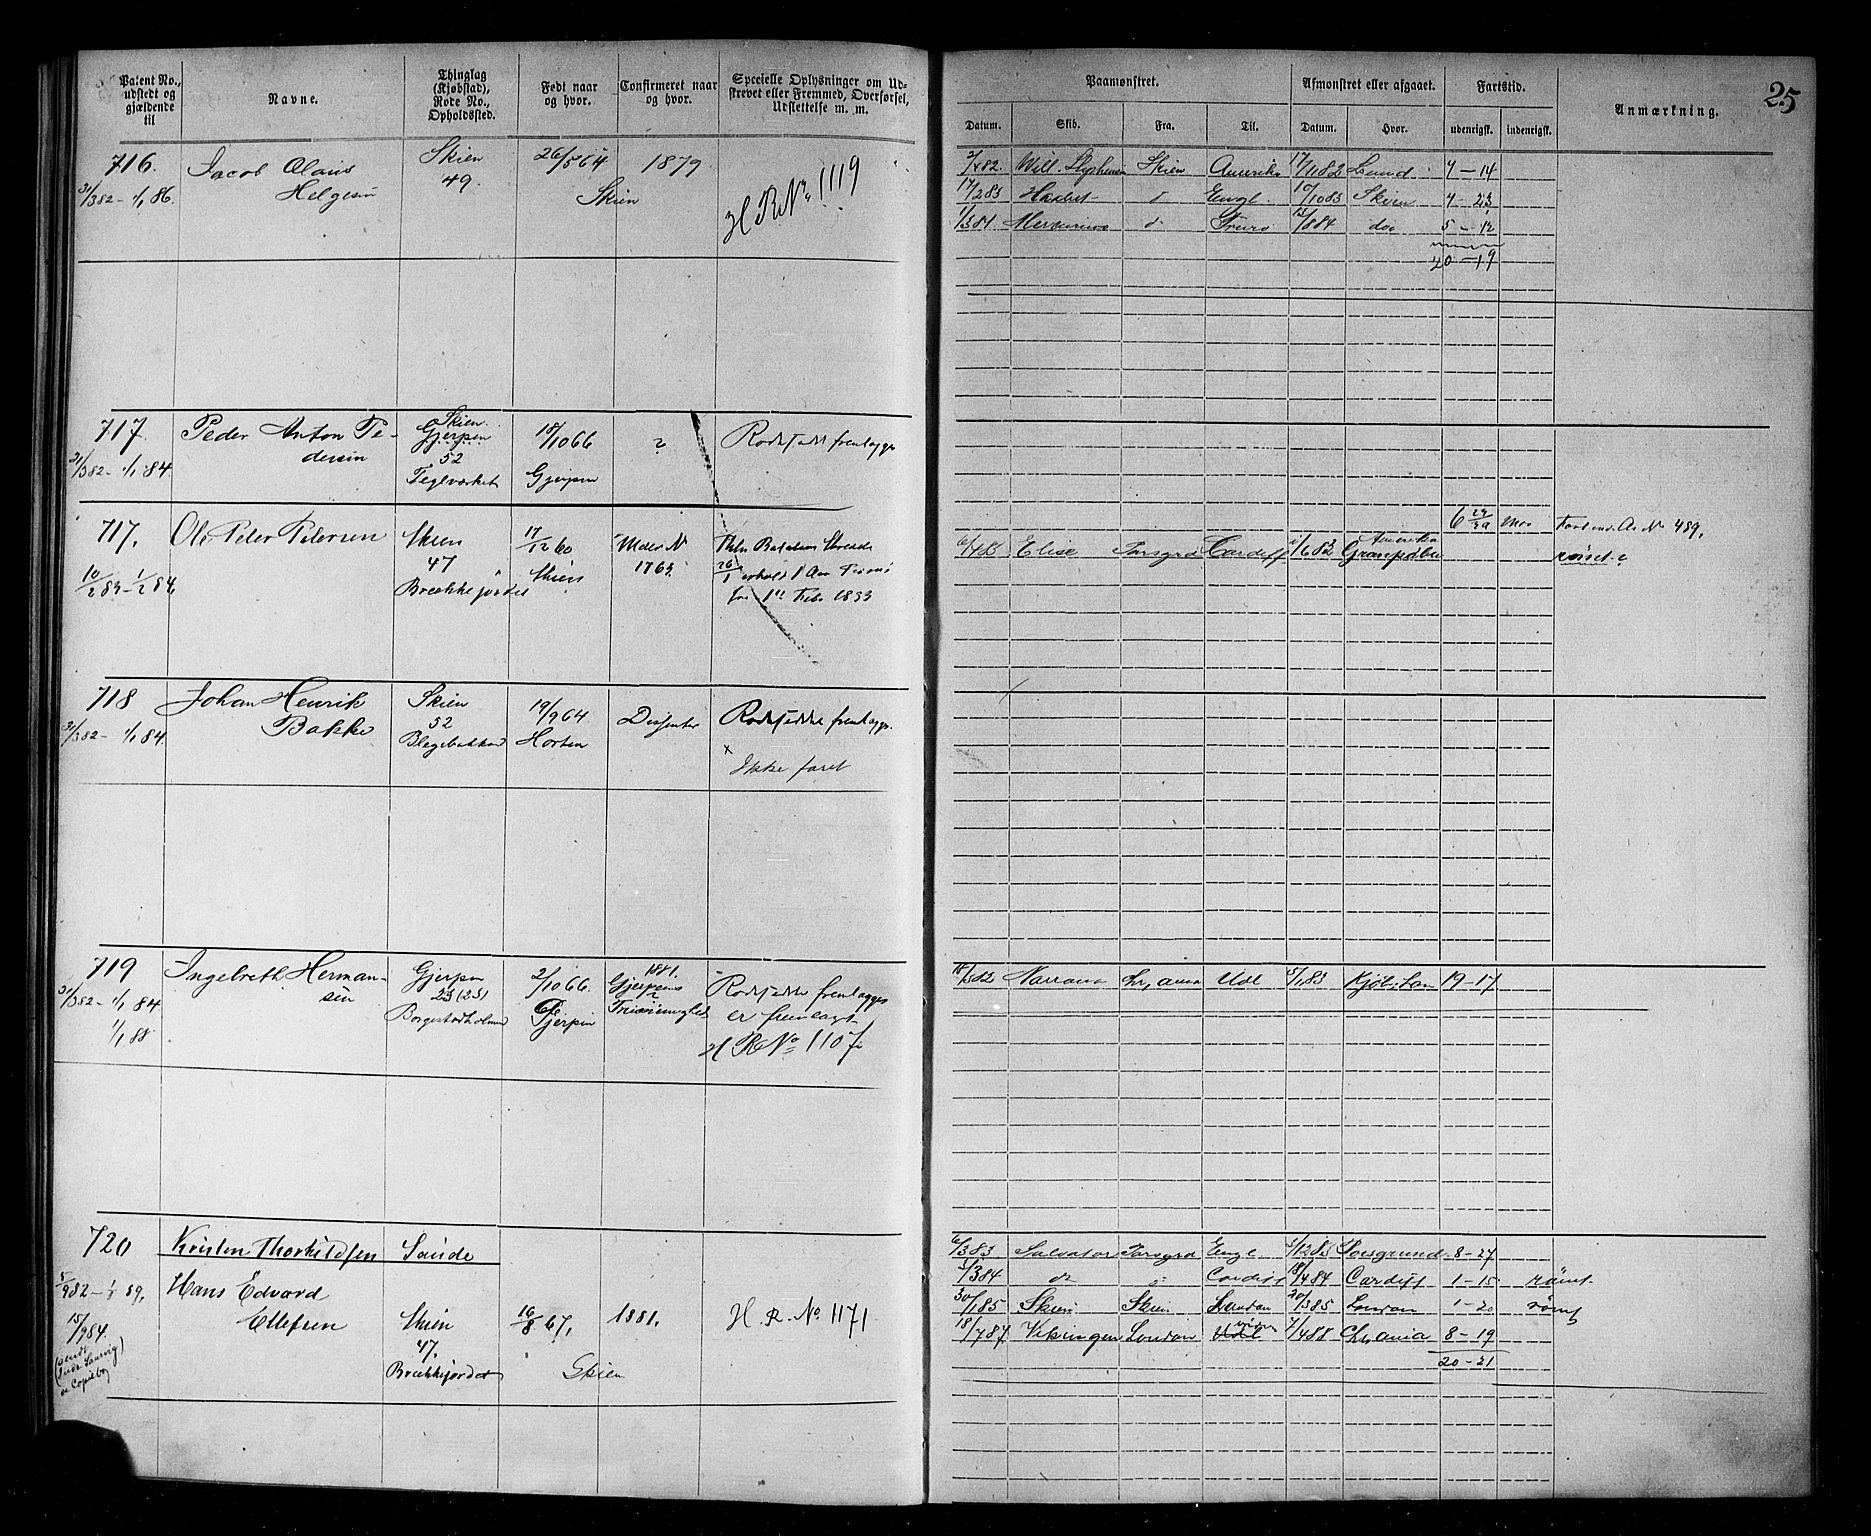 25
Patent No., udstedt og gjældende til
Navne.
Thinglag (Kjøbstad), Rode No., Opholdssted.
Født naar og hvor.
Confirmeret naar og hvor.
Specielle Oplysninger om Udskrevet eller Fremmed, Overførsel, Udslettelse m. m.
Paamønstret.
Afmønstret eller afgaaet.
Fartstid.
Anmærkning.
Datum.
Skib.
Fra.
Til.
Datum.
Hvor.
udenrigsk.
indenrigsk.
716. Jacob Olaus Skien 26/5 64 1879
31/3 82 - 1/1 86. Helgesen 49. Skien
H R No 1119
/4 82. Will. Skien Amerika 17/11 82 Lund 7-14
17/2 83 d Engl. 10/10 83 Skien 7-23
1/3 84 d do 5-12
20-19
717. Peder Anton Pe- Skien Gjerpen 18/10 66 ? Rodeseddel fremlægges
31/3 82 - 1/1 84. dersen 52
Teglværket Gjerpen
717. Ole Peter Petersen Skien 17/12 60 Under N
10/2 83 - 1/2 84 47 Skien 1763.
Brækkejordet
fra 1ste Febr 1883
6 29/30 Mdr No 489,
Elise Porsgrd Cardiff Amerika rømt
718 Johan Henrik Skien 19/9 64 Dissenter Rodeseddel fremlægges.
31/3 82 - 1/1 84. Bakke 52 Horten
Blegebakken
x
Ikke faret
719 Ingebreth Herman- Gjerpen 2/10 66. 1881. Rodeseddel fremlægges
31/3 82 - 1/1 84 sen 23 (25) Gjerpen Gjerpens er fremlagt
1/1 88 Borgestadholmen H R No 1107
18/5 82 Navarra Chr,ania Udl /1 83 Kjøb, havn 19-17
720 Kristen Thorkildsen Saude
5/9 82 - 1/1 89, Hans Edvard
15/9 84. Ellefsen Skien 16/8 67, 1881. H. R. No. 1171
47.
Brækkejordet Skien
6/3 83 Salvator Porsgrd Engl /12 83 Porsgrund 8-27
/3 84 do Cardiff 18/4 84 Cardiff 1-15 rømt
30/1 85 Skien Skien London 20/3 85 London 1-20 rømt
18/7 87 Vikingen London Udl 7/4 88 Chr,ania 8-19
20-21